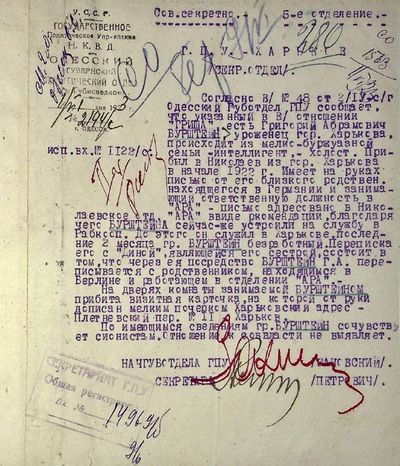 У.С.С.Р.
ГОСУДАРСТВЕННОЕ
Политическое Управление
Н.К.В.Д.
ОДЕССКИЙ
ГУБЕРНСКИЙ
г. ОДЕССА
исп.вх.№ 1122/с
Сов.секретно. 5-е отделение.
Г.П.У. - ХАРЬКОВ
/СЕКР.ОТДЕЛ/.
Согласно В/ № 48 от 2/IV-с/г
Одесский Губотдел ГПУ сообщает,
что указанный в В/ отношении
"ГРИША" есть Григорий Абрамович
БУРШТЕИН, уроженец гор. Харькова,
происходит из мелко-буржуазной
семьи -интеллигент,- холост. При-
был в Николаев из гор. Харькова
в начале 1922 г. Имеет на руках
письмо от его близкого родствен.
находящегося в Германии и занимаю-
щий ответственную должность в
"АРА" письмо адресовано в Нико-
лаевское отд. "АРА" ввиде рекомендации, благодаря
чего БУРШТЕИНА сейчас-же устроили на службу в
Рабкооп. До этого он служил в Харькове, послед-
ние 2 месяца гр. БУРШТЕИН безработный. Переписка
его с "ДИНОЙ", являющейся его сестрой, состоит в
том, что через ея посредство БУРШТЕИН Г.А. пере-
писывается с родственником, находящимся в
Берлине и работающем в отделении "АРА"
На дверях комнаты занимаемой БУРШТЕИНОМ
прибита визитная карточка, на которой от руки
дописан мелким почерком Харьковский адрес -
Плетневский пер. № 11 Харьков.
По имеющимся сведениям гр. БУРШТЕИН сочувству
ет сионистам. Отношения к совласти не выявляет.
НАЧГУБОТДЕЛА ГПУ
СЕКРЕТАРЬ /ПЕТРОВИЧ/.
СЕКРЕТАРИАТ Г.П.У.
Общая регистрат.
Вх №